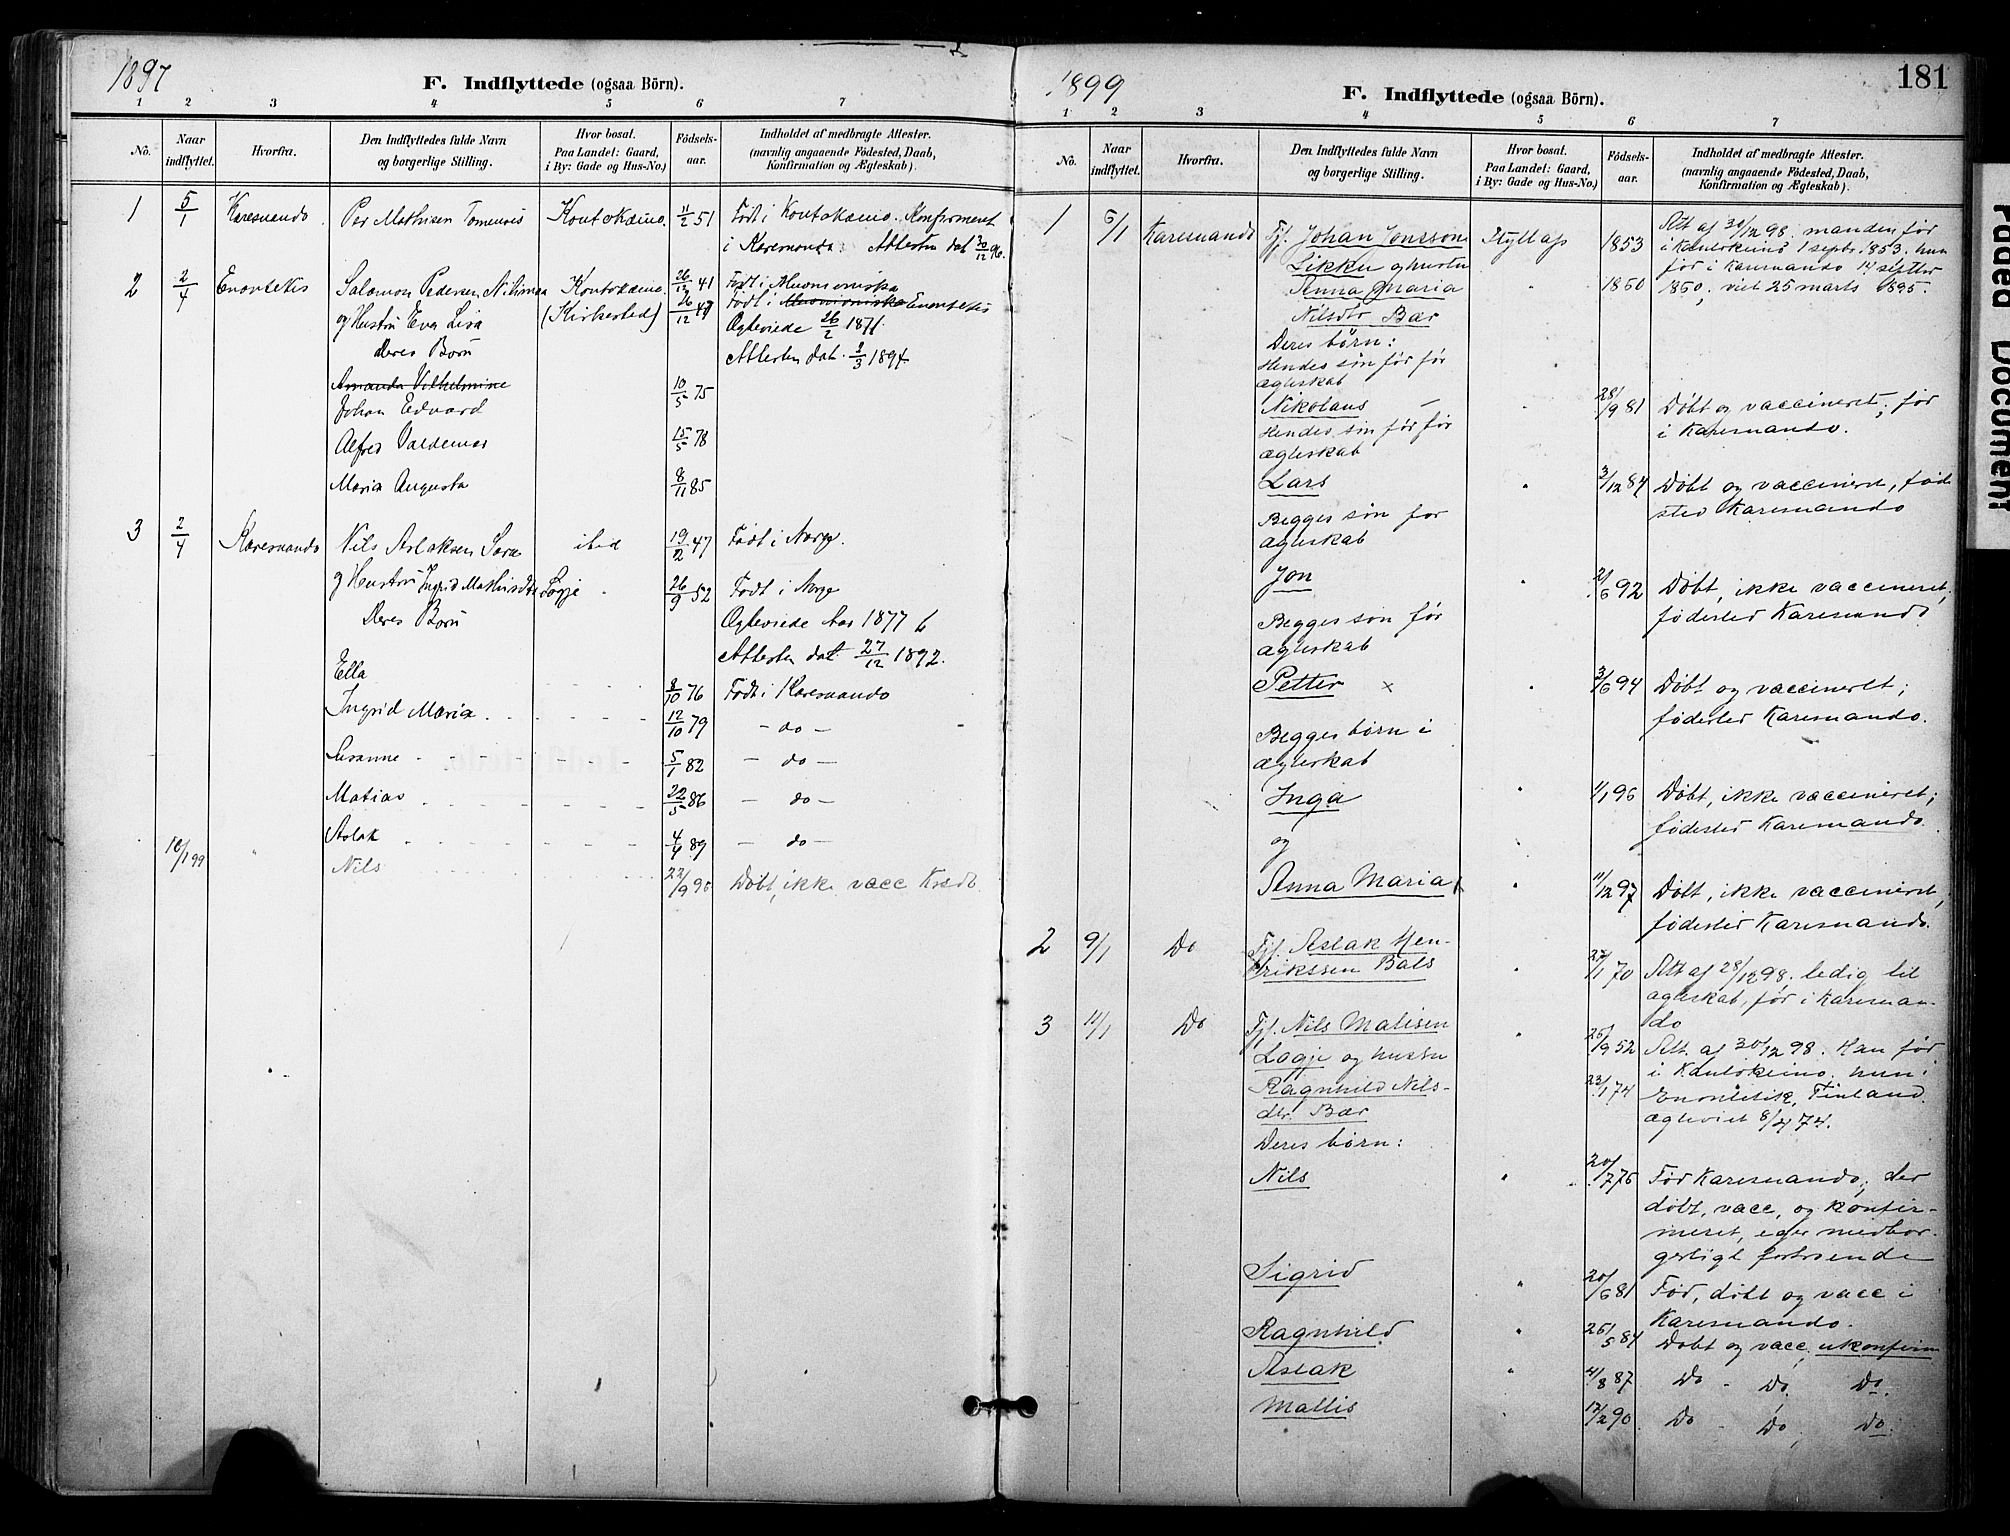 1897
F. Indflyttede (ogsaa Börn).
1 2 3 4 5 6 7
No.
Naar indflyttet.
Hvorfra.
Den Indflyttedes fulde Navn og borgerlige Stilling.
Hvor bosat. Paa Landet: Gaard, i By: Gade og Hus-No.)
Födsels-aar.
Indholdet af medbragte Attester. (navnlig angaaende Födested, Daab, Konfirmation og Ægteskab).
1 5/1 Karesuando Per Mathisen Koutokæino. 11/2 51 Født i Koutokæino. Konfirmeret
i Karesuando. Attesten dat 30/12 96.
2 2/4 Enontekis Salomon Pedersen Koutokæino. 26/12 41 Født i Muonioniska
og Hustru Eva Lisa (Kirkested) 26/12 47 Født i Muonioniska Enontekis
Deres Børn Ægteviede 26/2 1871.
Attesten dat. 2/3 1894.
Amanda Vilhelmine
Johan Edvard 10/5 75
Alfred Valdemar 15/5 78
Maria Augusta 8/11 85
3 2/4 Karesuando Nils Aslaksen Sara ibid 19/2 47 Født i Norge.
og Hustru Ingrid Mathisdtr Løgje 26/9 52 Født i Norge
Deres Børn Ægteviede Aar 1877
Attesten dat 27/12 1892.
Ella 8/10 76 Født i Karesuando
Ingrid Maria 12/10 79 - do -
Susanne 5/1 82 - do -
Matias 22/5 86 - do -
Aslak 4/4 89 - do -
10/1 99 " Nils 22/9 90 Døbt, ikke vacc
1899
181
F. Indflyttede (ogsaa Börn).
1 2 3 4 5 6 7
No.
Naar indflyttet.
Hvorfra.
Den Indflyttedes fulde Navn og borgerlige Stilling.
Hvor bosat. Paa Landet: Gaard, i By: Gade og Hus-No.)
Födsels-aar.
Indholdet af medbragte Attester. (navnlig angaaende Födested, Daab, Konfirmation og Ægteskab).
1 5/1 Karesuando Fjf. Johan Jonsson 1853 Att af 30/12 98. manden fød
Likku og hustru i Kautokeino 1 septbr 1853. hun
Anna Maria 1860 fød i Karesuando 14 septbr
Nilsdtr Bær 1860, viet 25 marts 1895.
Deres børn:
Hendes søn før
ægteskab
Nikolaus 28/9 81 Døbt og vaccineret; fød
i Karesuando.
Hendes søn før
ægteskab
Lars " 3/12 84 Døbt og vaccineret, føde
sted Karesuando
Begges søn før
ægteskab
Jon " 2/6 92 Døbt, ikke vaccineret,
fødested Karesuando
Begges søn før
ægteskab
Petter x " 3/6 94 Døbt og vaccineret;
fødested Karesuando.
Begges børn i
ægteskab
Inga " 1/1 96 Døbt, ikke vaccineret;
fødested Karesuando.
og
Anna Maria " 11/12 97 Døbt, ikke vaccineret,
fødested Karesuando.
2 9/1 Do Fjf. Aslak Hen-
rikssen Bals " 27/1 70 Att af 28/12 98. ledig til
ægteskab, fød i Karesuan-
do
3 11/1 Do Fjf. Nils Matisen " 26/9 52 Att. af 30/12 98. Han fød
Logje og hustru i Kautokeino, hun i
Ragnhild Nils- 23/1 74 Enontekis, Finland.
dtr. Bær ægteviet 8/4 74.
Deres børn:
Nils " 20/7 76 Fød Karesuando; der
døbt, vacc, og konfir-
meret, eger medbor-
gerligt fortroende
Sigrid " 20/6 81 Fød, døbt og vacc i
Karesuando.
Ragnhild " 26/5 84 Døbt og vacc, ukonfirm
Aslak " 4/8 87 Do - Do, Do.
Mattis 17/2 90 Do - Do, Do.
Påled Document